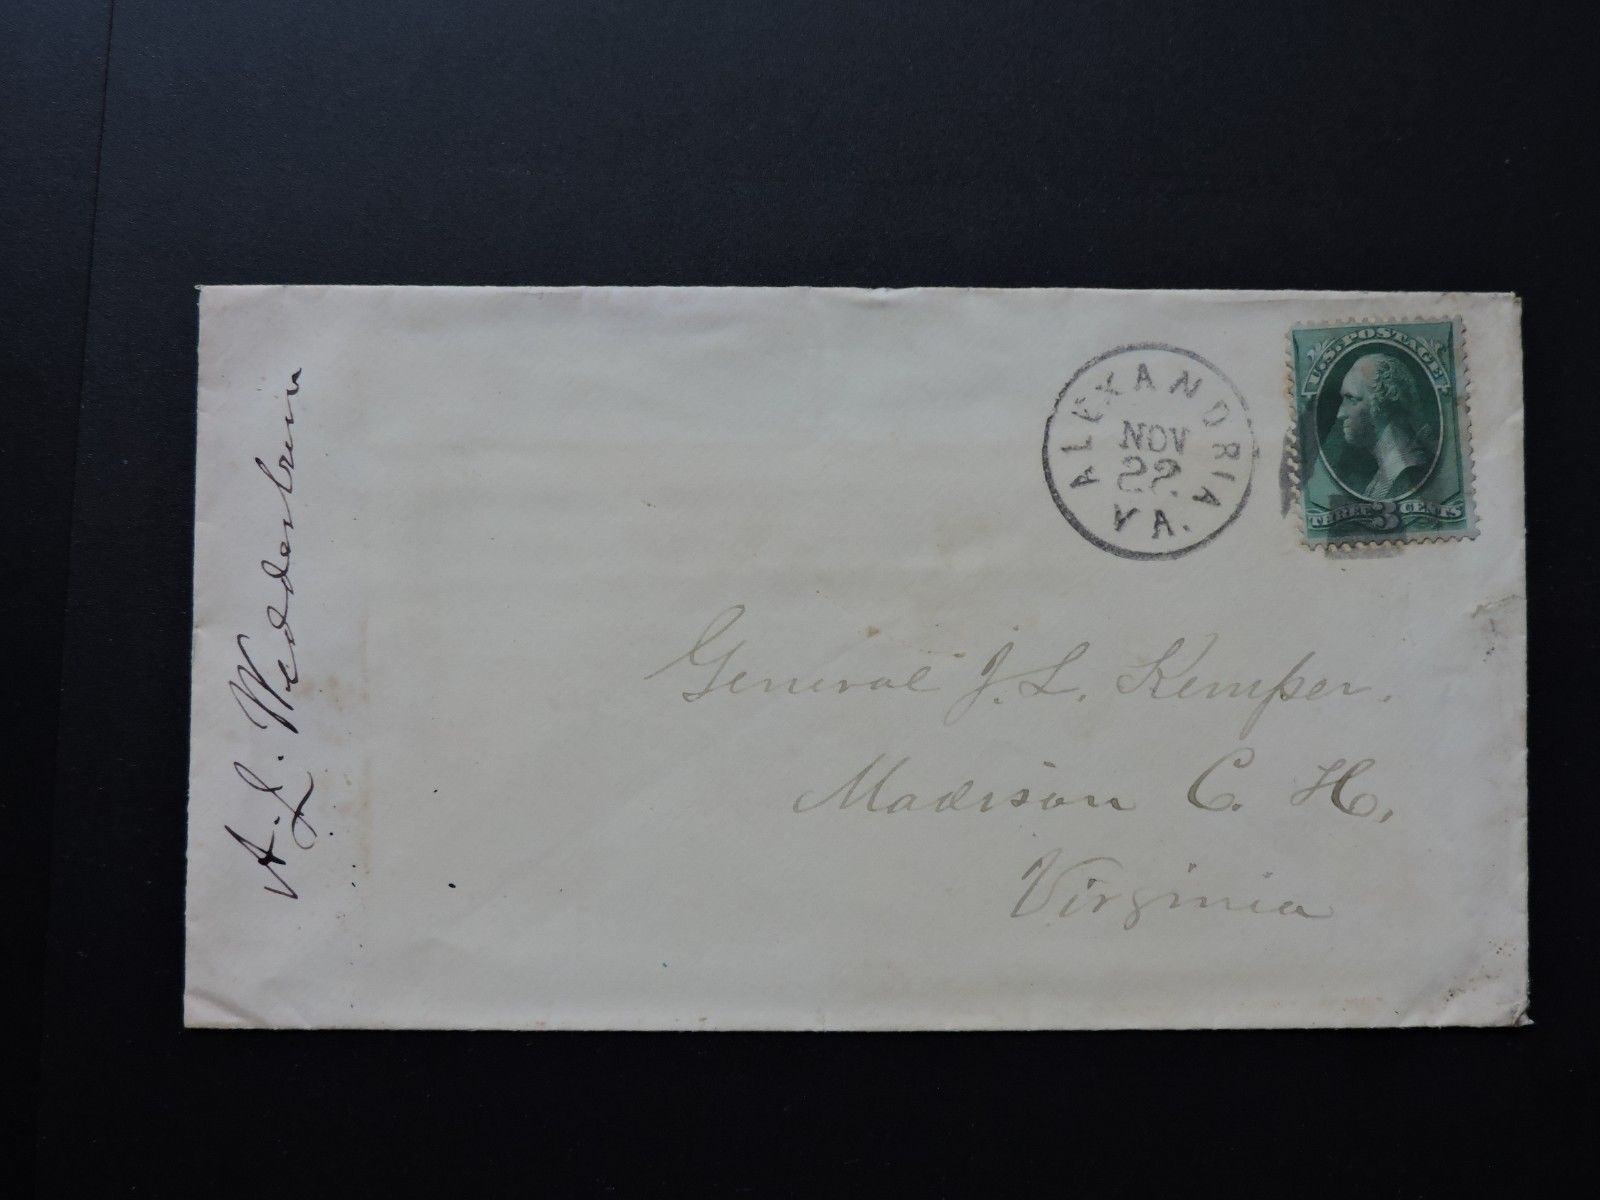 A. L. Wedderburn
ALEXANDRIA
NOV
22.
VA.
U.S. POSTAGE
THREE 3 CENTS
General J. L. Kemper.
Madison C. H.,
Virginia